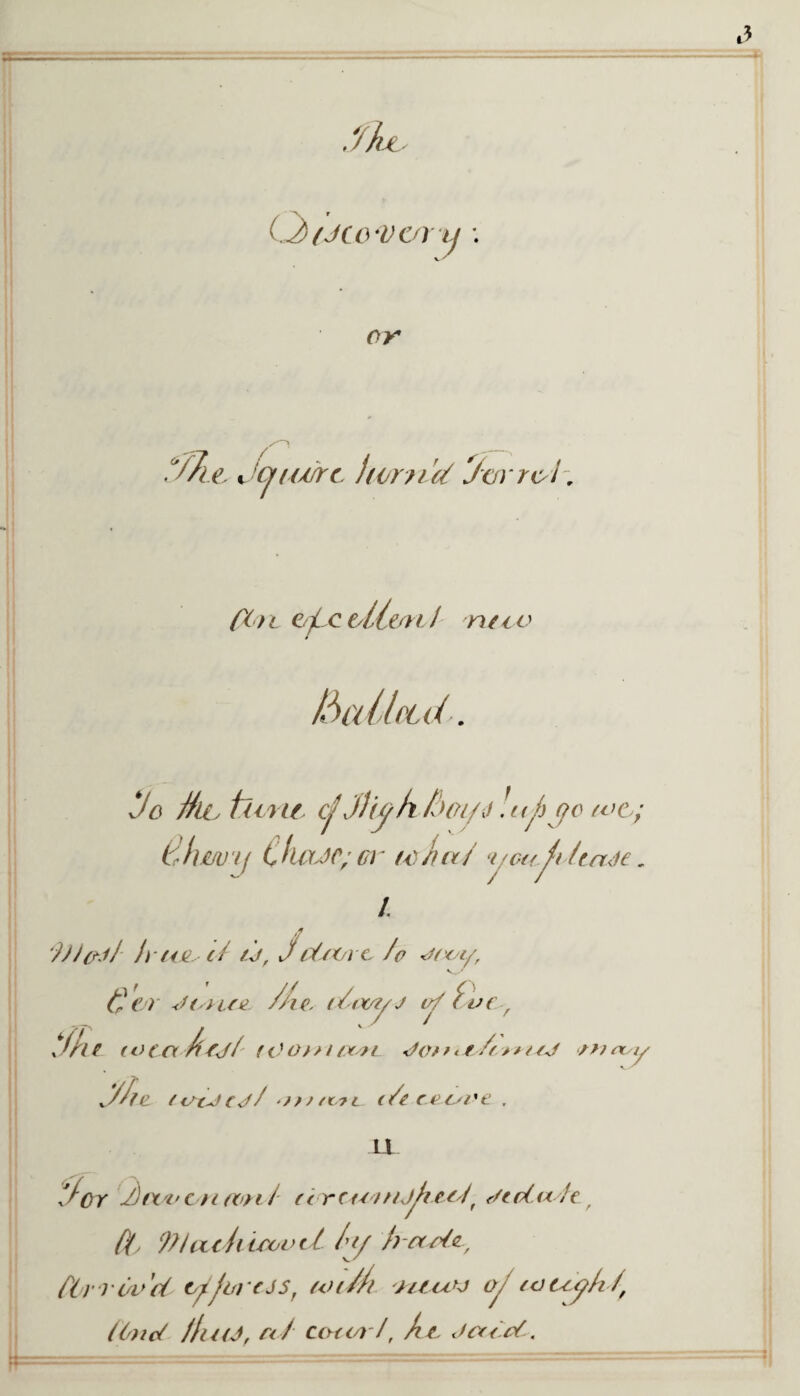 3
The
Discovery:
or
The Squire turn'd Ferret.
An excellent new
Ballad.
To the tune of High Boys! up go we;
Chevy Chase; or what you please.
1.
Most true it is, I dare to say,
E'er since the days of Eve,
The weakest woman sometimes may
The wisest man deceive.
11
For Davenant circumspect, sedate,
A Machiavel by trade,
Arriv'd express, with news of weight,
And thus, at court, he said.